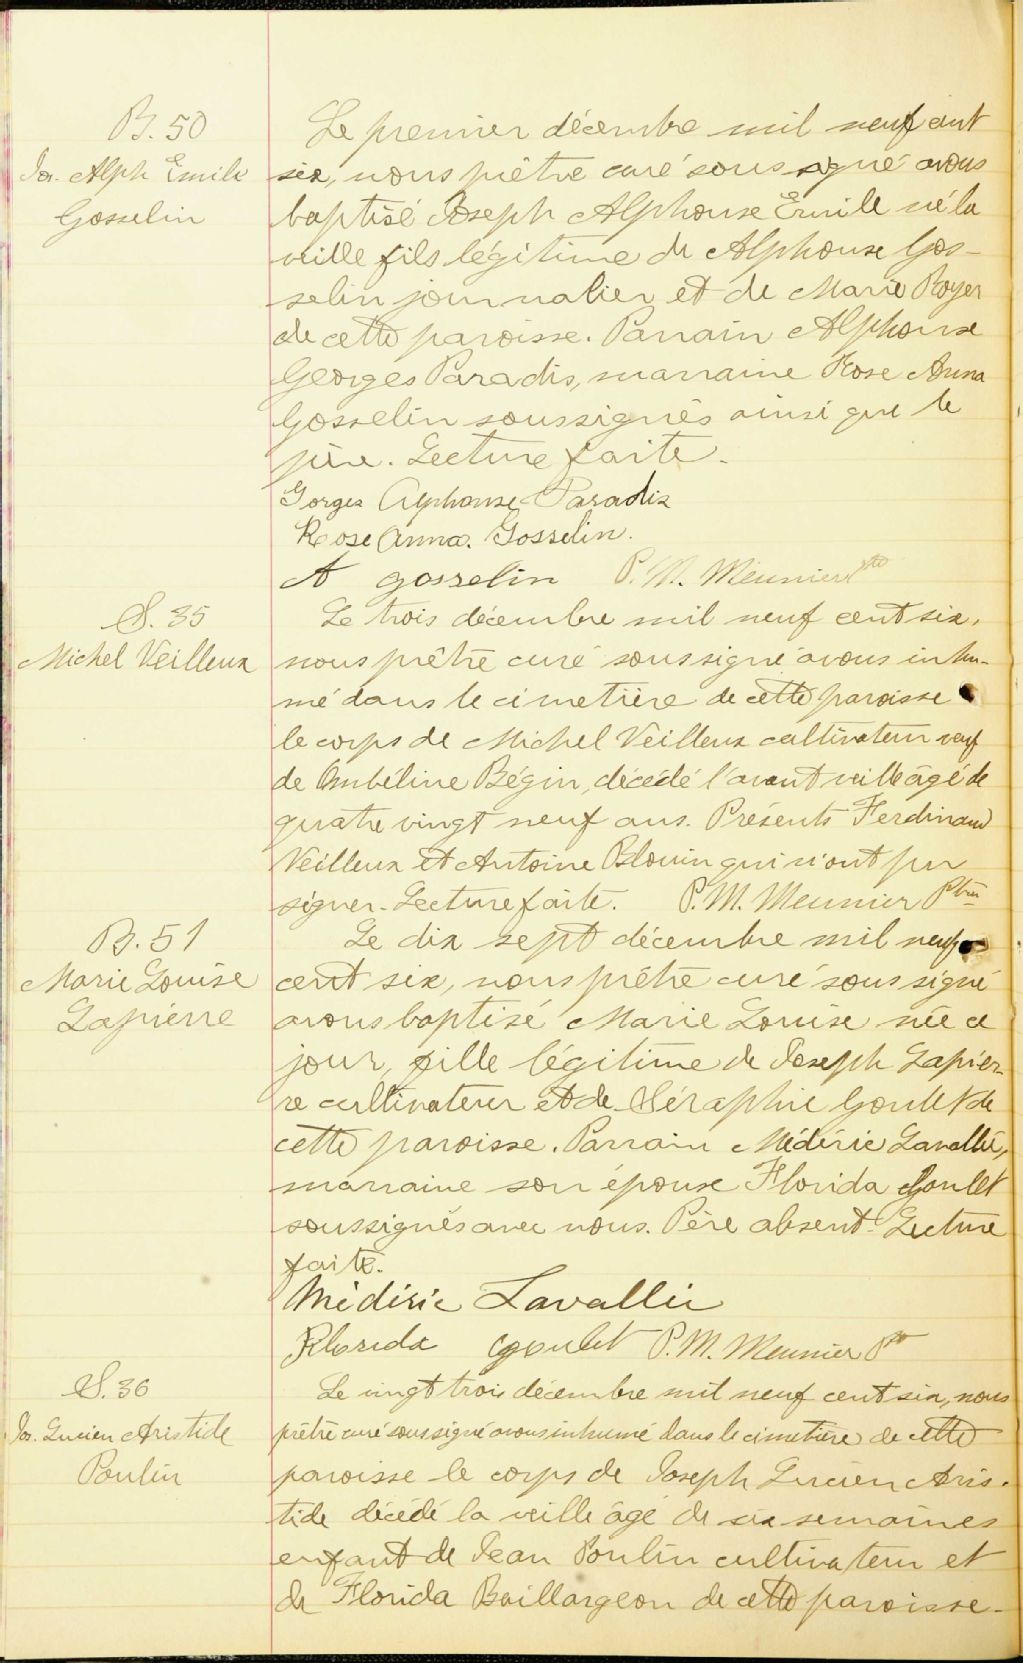 B. 50
Jos. Alph Emile
Gosselin
Le premier décembre mil neuf cent
six, nous prêtre curé soussigné avons
baptisé Joseph Alphonse Emile né la
veille fils légitime de Alphonse Gos-
selin journalier et de Marie Royer
de cette paroisse. Parrain Alphonse
Georges Paradis, marraine Rose Anna
Gosselin soussignés ainsi que le
père. Lecture faite.
Gorges Alphonse Paradis
Rose Anna. Gosselin.
A gosselin P. M. Meunier Ptre
S. 35
Michel Veilleux
Le trois décembre mil neuf cent six,
nous prêtre curé soussigné avons inhu-
mé dans le cimetière de cette paroisse
le corps de Michel Veilleux cultivateur veuf
de Ombéline Bégin, décédé l'avant veille âgé de
quatre vingt neuf ans. Présents Ferdinand
Veilleux et Antoine Blouin qui n'ont pu
signer. Lecture faite. P. M. Meunier Ptre
B. 51
Marie Louise
Lapierre
Le dix sept décembre mil neuf
cent six, nous prêtre curé soussigné
avons baptisé Marie Louise née ce
jour, fille légitime de Joseph Lapier-
re cultivateur et de Séraphie Goulet de
cette paroisse. Parrain Médéric Lavallée,
marraine son épouse Florida Goulet
soussignés avec nous. Père absent. Lecture
faite.
Médéric Lavallée
Florida goulet P. M. Meunier Ptre
S. 36
Jos. Lucien Aristide
Poulin
Le vingt trois décembre mil neuf cent six, nous
prêtre curé soussigné avons inhumé dans le cimetière de cette
paroisse le corps de Joseph Lucien Aris-
tide décédé la veille âgé de six semaines
enfant de Jean Poulin cultivateur et
de Florida Baillargeon de cette paroisse.